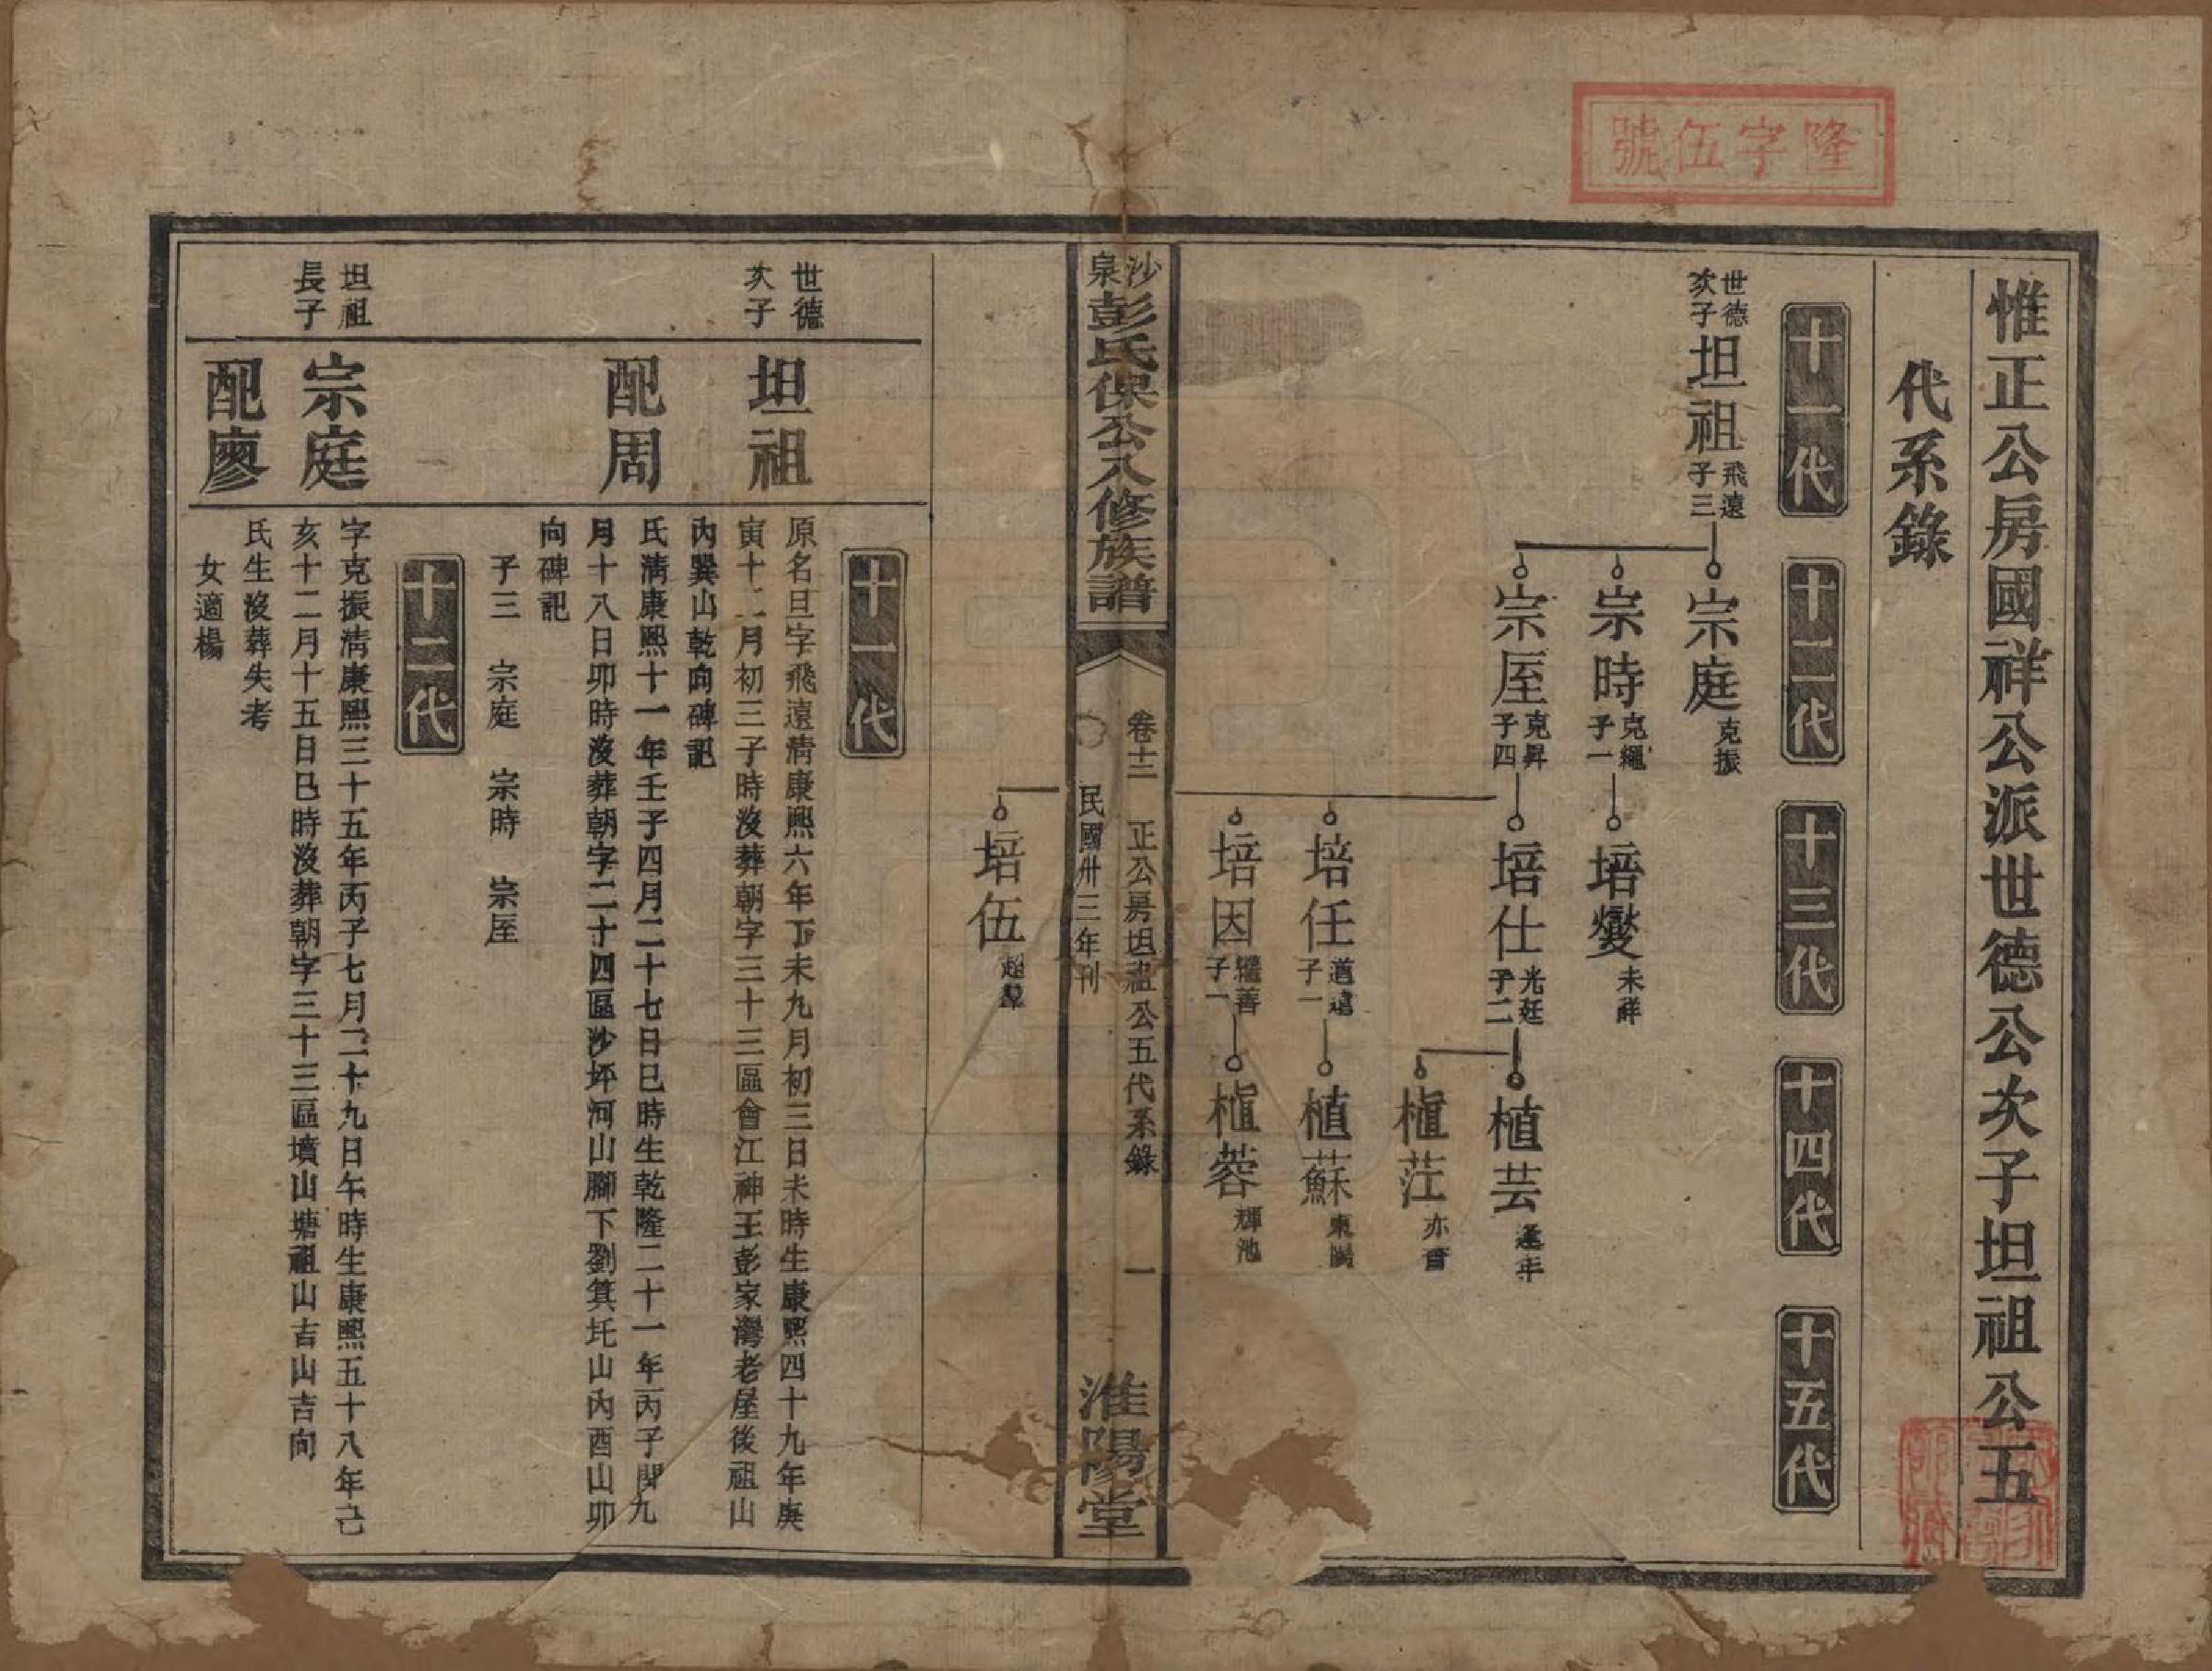 隆字伍號
惟正公房國祥公派世德公次子坦祖公五
代系錄
十一代
十二代
十三代
十四代
十五代
世德次子
坦祖
飛遠子三
宗庭
克振
宗時
克繩子一
培燮
未詳
宗厔
克昇子四
培仕
光廷子二
植芸
逢年
植茳
亦會
培任
道遠子一
植蘇
東陽
培因
子一
植蓉
輝池
沙泉彭氏保公八修族譜
卷十二
正公房坦祖公五代系錄
一
民國卅三年刊
淮陽堂
培伍
超羣
十一代
世德次子
坦祖
原名旦字飛遠清康熙六年丁未九月初三日未時生康熙四十九年庚
寅十二月初三子時沒葬朝字三十三區會江神王彭家灣老屋後祖山
內巽山乾向碑記
配周
氏清康熙十一年壬子四月二十七日巳時生乾隆二十一年丙子閏九
月十八日卯時沒葬朝字二十四區沙坪河山腳下劉箕坉山內酉山卯
向碑記
子三 宗庭 宗時 宗厔
十二代
坦祖長子
宗庭
字克振清康熙三十五年丙子七月二十九日午時生康熙五十八年己
亥十二月十五日巳時沒葬朝字三十三區墳山塘祖山吉山吉向
配廖
氏生沒葬失考
女適楊